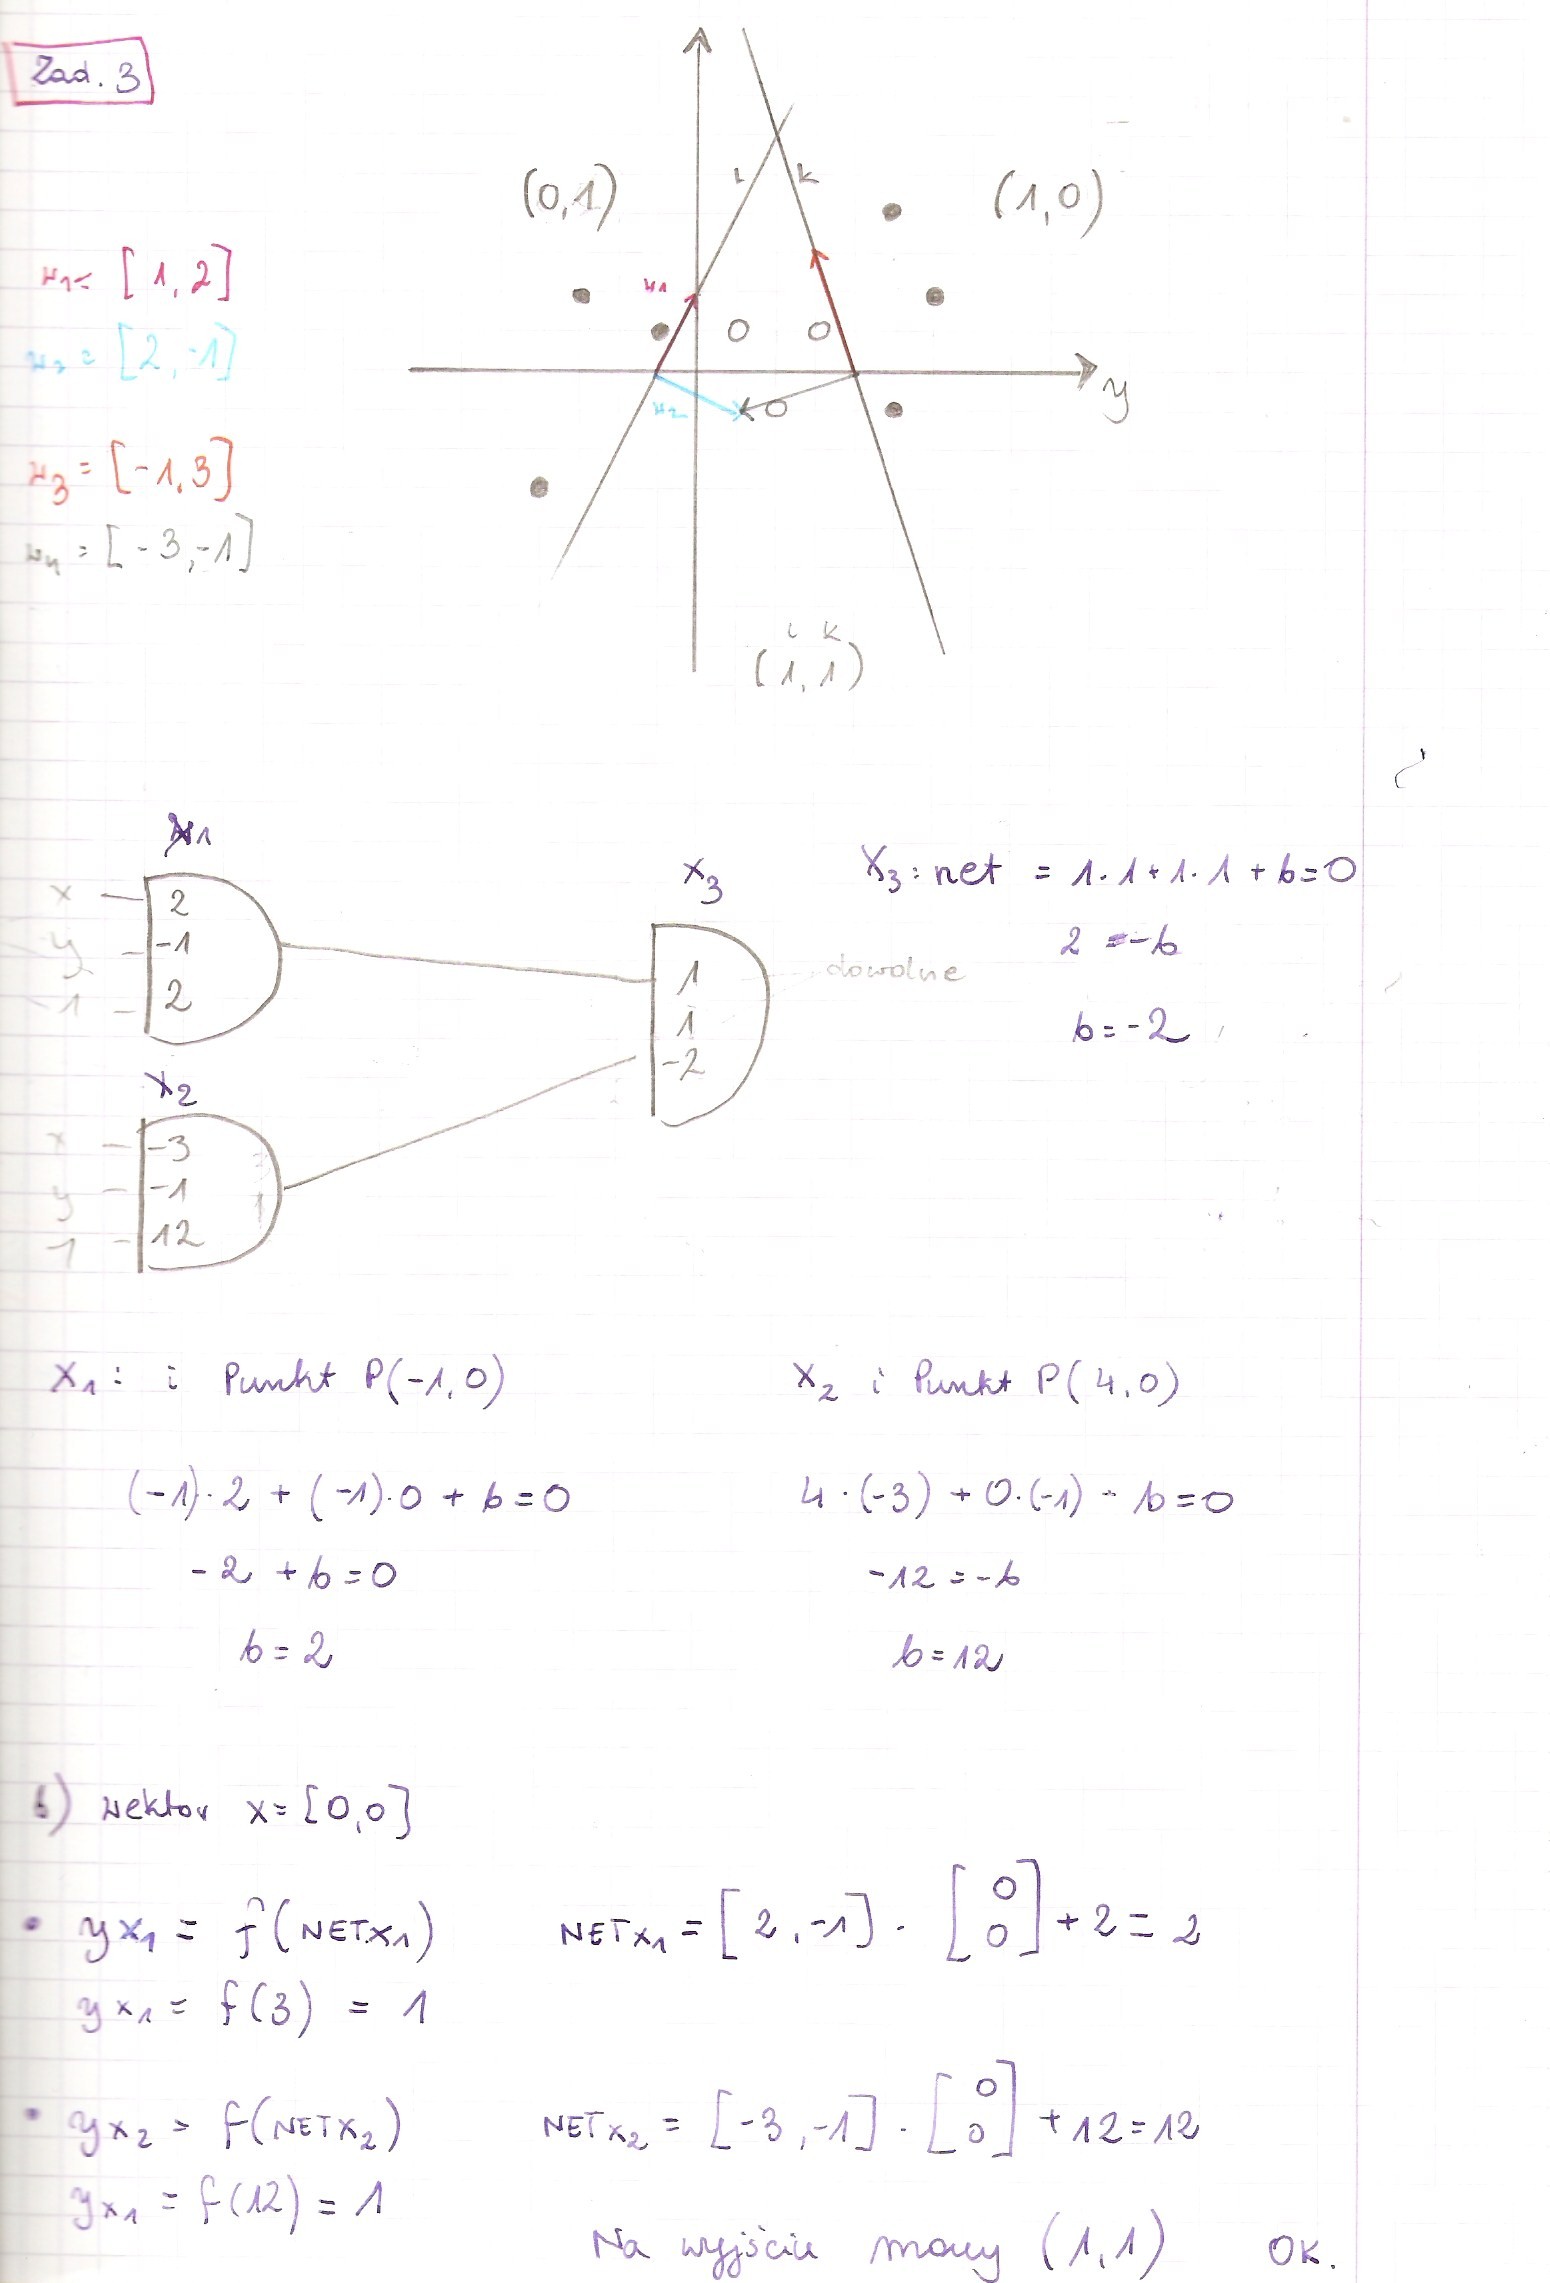 Zad. 3
(0,1)
(1,0)
i
k
w1= [1,2]
w2= [2,-1]
w3= [-1,3]
w4= [-3,-1]
w1
w2
y
i k
(1,1)
X1
x 2
y -1
1 2
X2
x -3
y -1
1 12
X3
1
1
-2
dowolne
X3: net = 1·1+1·1+b=0
2 =-b
b=-2
X1: i Punkt P(-1,0)
(-1)·2 + (-1)·0 + b=0
-2 +b=0
b=2
X2 i Punkt P(4,0)
4·(-3) + 0·(-1) - b=0
-12=-b
b=12
b) wektor x=[0,0]
• yx1 = f(NETX1) NETX1 = [2,-1] · [0 0] +2=2
yx1 = f(3) = 1
• yx2 = f(NETX2) NETX2 = [-3,-1] · [0 0] +12=12
yx1 = f(12) = 1
Na wyjściu mamy (1,1) OK.